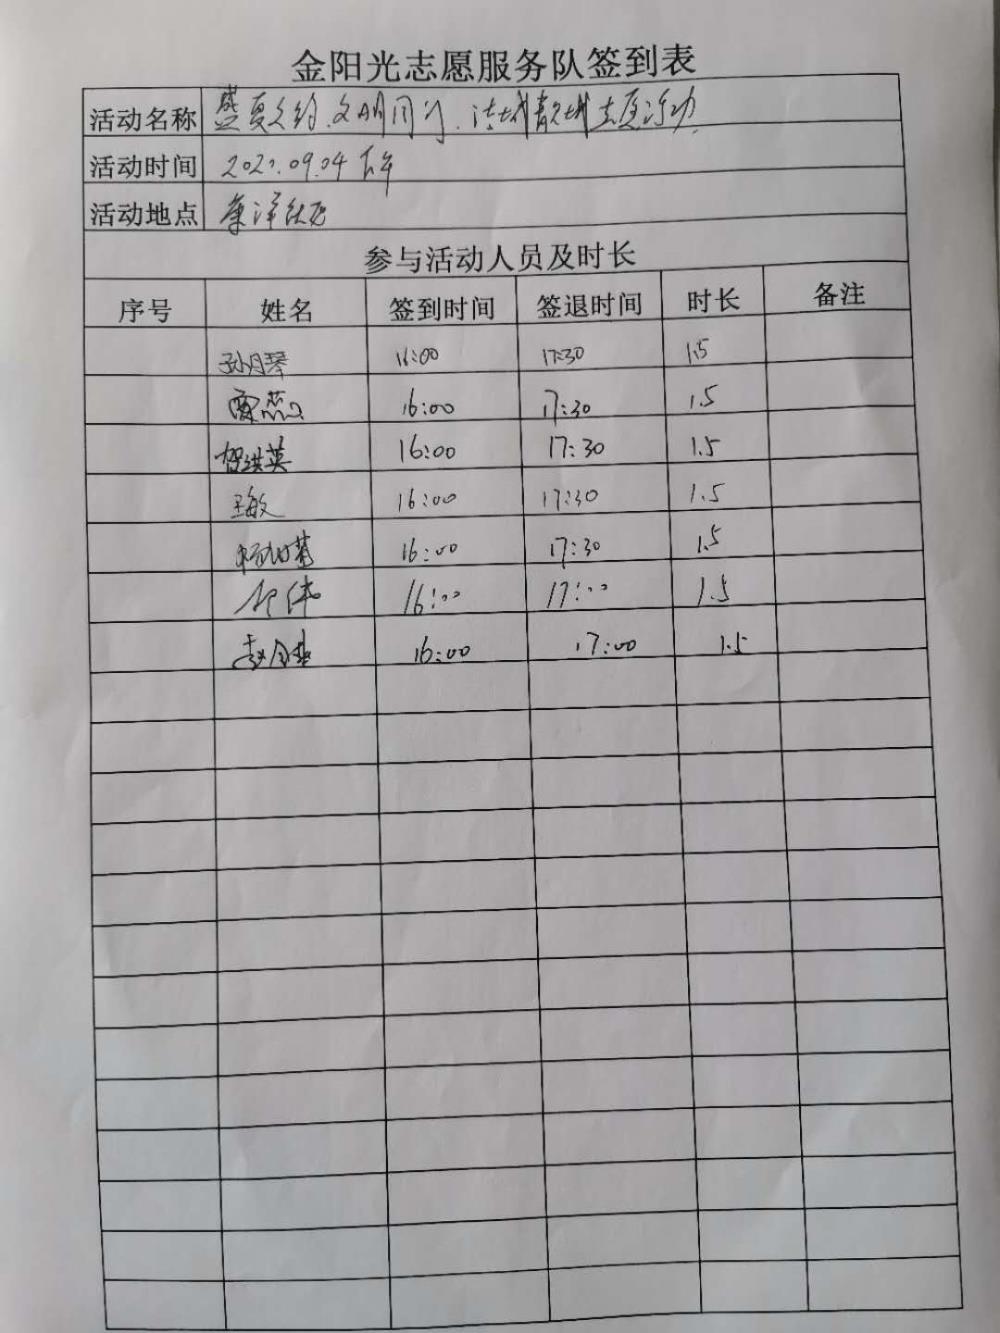 金阳光志愿服务队签到表
活动名称 盛夏之约.文明同行.洁城靓城志愿活动
活动时间 202?.09.04 下午
活动地点
参与活动人员及时长
序号 姓名 签到时间 签退时间 时长 备注
孙月琴 16:00 17:30 1.5
雷蕊 16:00 17:30 1.5
智洪英 16:00 17:30 1.5
王敏 16:00 17:30 1.5
16:00 17:30 1.5
16:00 17:00 1.5
赵 16:00 17:00 1.5